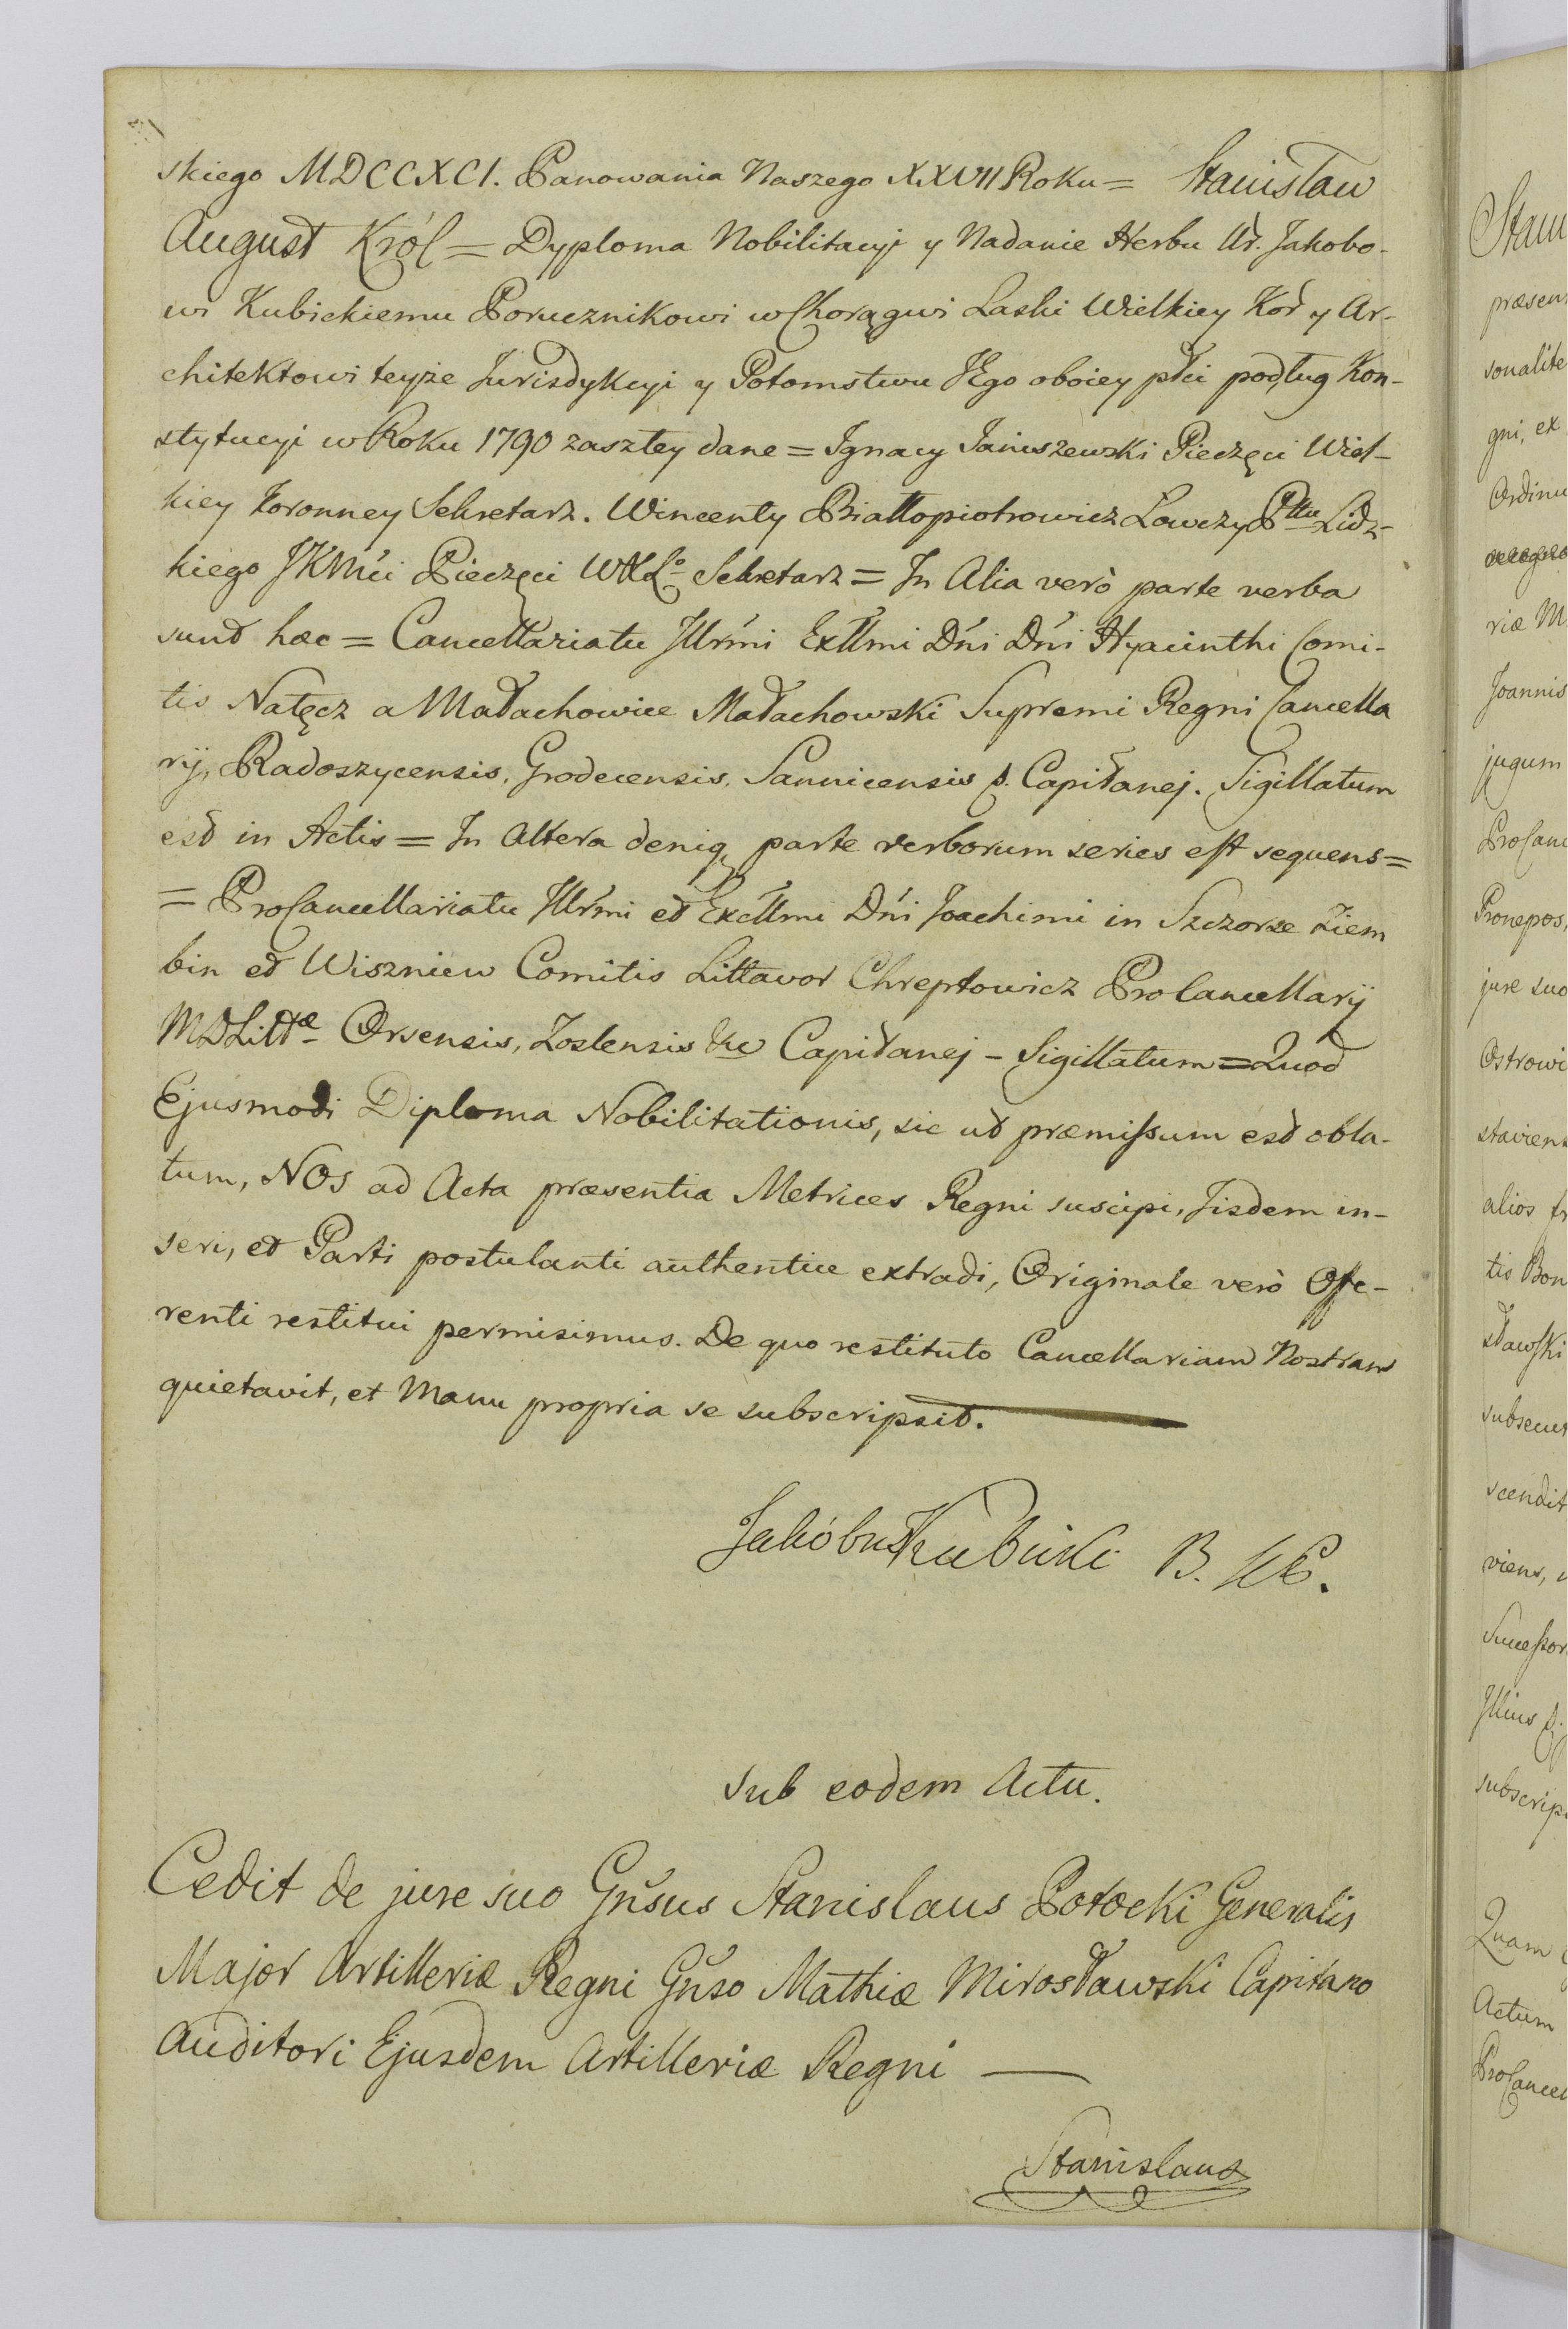 skiego MDCCXCI. Panowania Naszego XXVII Roku = Stanisław
August Król = Dyploma Nobilitacyi y Nadanie Herbu Ur. Jakobo-
wi Kubickiemu Porucznikowi w Chorągwi Laski Wielkiey Kor y Ar-
chitektowi teyże Jurisdykcyi y Potomstwu JEgo oboiey płci podług Kon-
stytucyi w Roku 1790 zaszłey dane = Ignacy Januszewski Pieczęci Wiel-
kiey Koronney Sekretarz. Wincenty Białłopiotrowicz Łowczy Pttu Lidz-
kiego JKMci Pieczęci WXLo Sekretarz = In Alia verò parte verba
sunt hæc = Cancellariatu Jllrmi Exllmi Dni Dni Hyacinthi Comi-
tis Nałęcz a Małachowice Małachowski Supremi Regni Cancella
rij, Radoszycensis, Grodecensis, Sannicensis &. Capitanej. Sigillatum
est in Actis = In Altera deniq parte verborum series est sequens =
= ProCancellariatu Jllrmi et Excllmi Dni Joachimi in Szczorse Ziem
bin et Wiszniew Comitis Littavor Chreptowicz ProCancellarij
MDLittæ Orsensis, Zoslensis &c Capitanej - Sigillatum = Quod
Ejusmodi Diploma Nobilitationis, sic ut præmissum est obla-
tum, NOs ad Acta præsentia Metrices Regni suscipi, Jisdem in-
seri, et Parti postulanti authentice extradi, Originale verò Offe-
renti restitui permisimus. De quo restituto Cancellariam Nostram
quietavit, et Manu propria se subscripsit.
Jakób Kubicki B.
Sub eodem Actu.
Cedit de jure suo Gnsus Stanislaus Potocki Generalis
Major Artilleriæ Regni Gnso Mathiæ Mirosławski Capitano
Auditori Ejusdem Artilleriæ Regni —
Stanislaus
Stan
præsen
sonalite
gni, ex
Ordinu
riæ M
Joannis
jugum
ProCanc
Pronepos,
jure suo
Ostrowi
staviens
alios fr
tis Bon
sławski
subsecut
scendit
viens,
Successor
Illius
subscrip
Quam
Actum
ProCancel